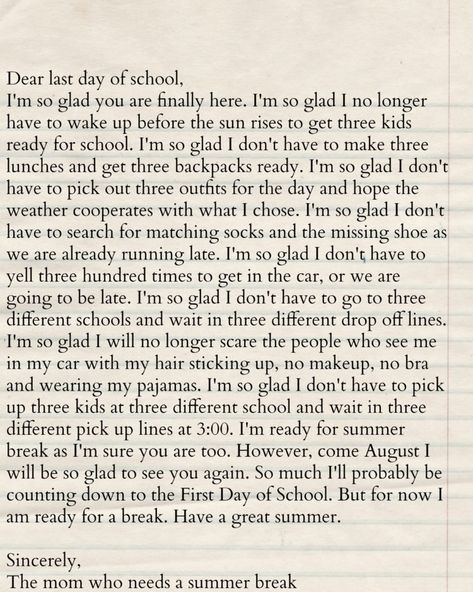 Dear last day of school,
I'm so glad you are finally here. I'm so glad I no longer
have to wake up before the sun rises to get three kids
ready for school. I'm so glad I don't have to make three
lunches and get three backpacks ready. I'm so glad I don't
have to pick out three outfits for the day and hope the
weather cooperates with what I chose. I'm so glad I don't
have to search for matching socks and the missing shoe as
we are already running late. I'm so glad I don't have to
yell three hundred times to get in the car, or we are
going to be late. I'm so glad I don't have to go to three
different schools and wait in three different drop off lines.
I'm so glad I will no longer scare the people who see me
in my car with my hair sticking up, no makeup, no bra
and wearing my pajamas. I'm so glad I don't have to pick
up three kids at three different school and wait in three
different pick up lines at 3:00. I'm ready for summer
break as I'm sure you are too. However, come August I
will be so glad to see you again. So much I'll probably be
counting down to the First Day of School. But for now I
am ready for a break. Have a great summer.

Sincerely,
The mom who needs a summer break